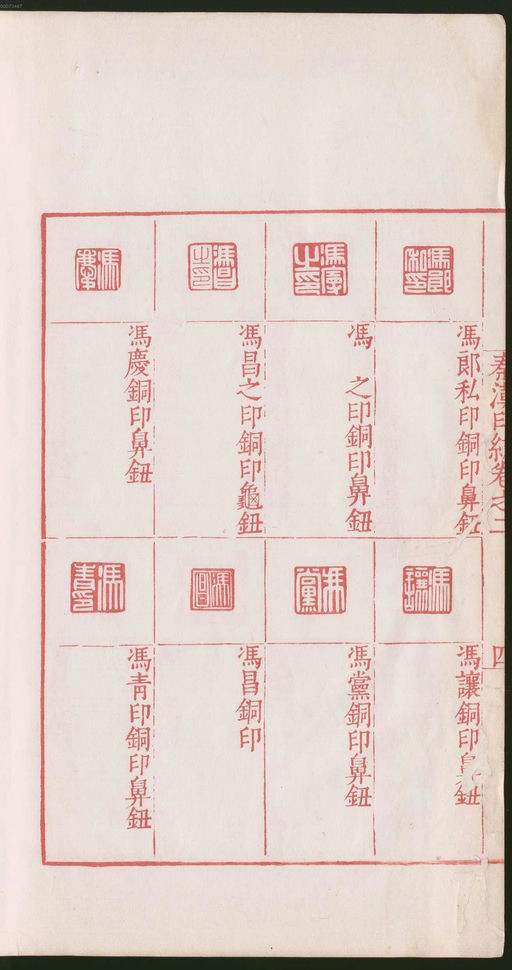 00073447
秦漢印統卷之二
四
馮郎私印銅印鼻鈕
馮 之印銅印鼻鈕
馮昌之印銅印龜鈕
馮慶銅印鼻鈕
馮讓銅印鼻鈕
馮黨銅印鼻鈕
馮昌銅印
馮青印銅印鼻鈕